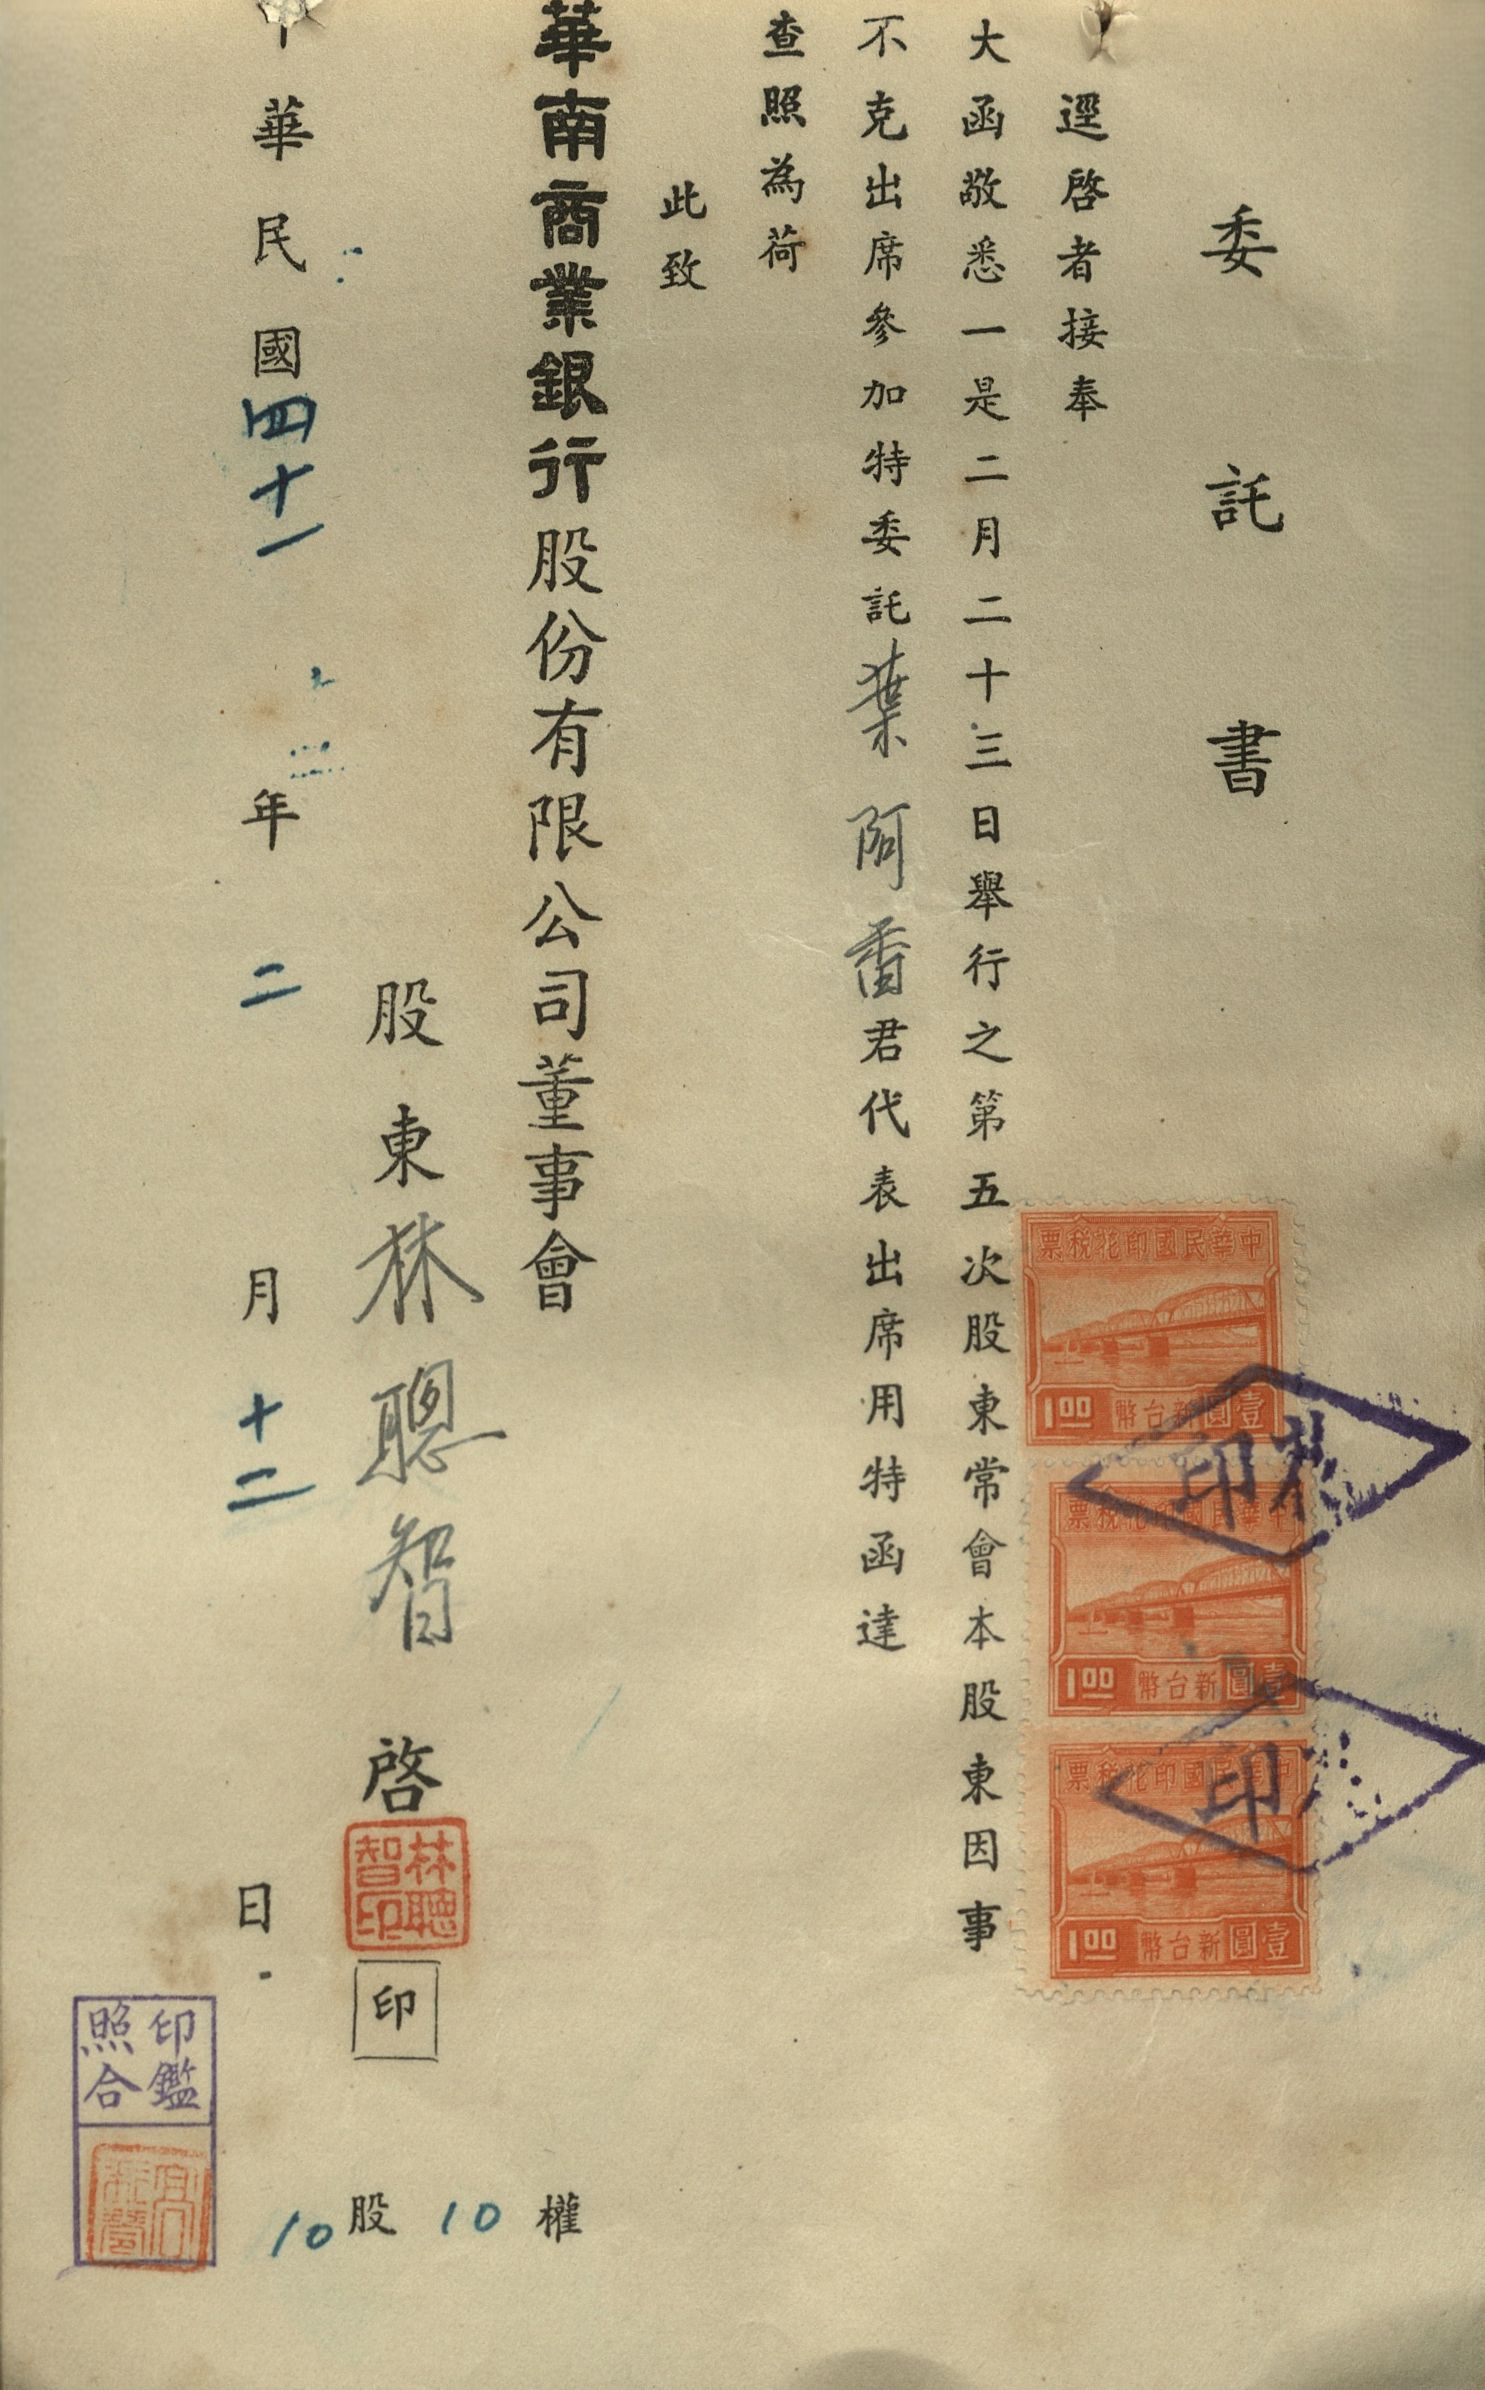 委託書
逕啓者接奉
大函敬悉一是二月二十三日舉行之第五次股東常會本股東因事
不克出席參加特委託葉阿香君代表出席用特函達
查照為荷
此致
華南商業銀行股份有限公司董事會
股東林聰智啓
林聰智印
印
中華民國四十一年二月十二日
10股10權
印鑑照合
中華民國印花稅票
1.00 壹圓新台幣
中華民國印花稅票
1.00 壹圓新台幣
中華民國印花稅票
1.00 壹圓新台幣
印
印